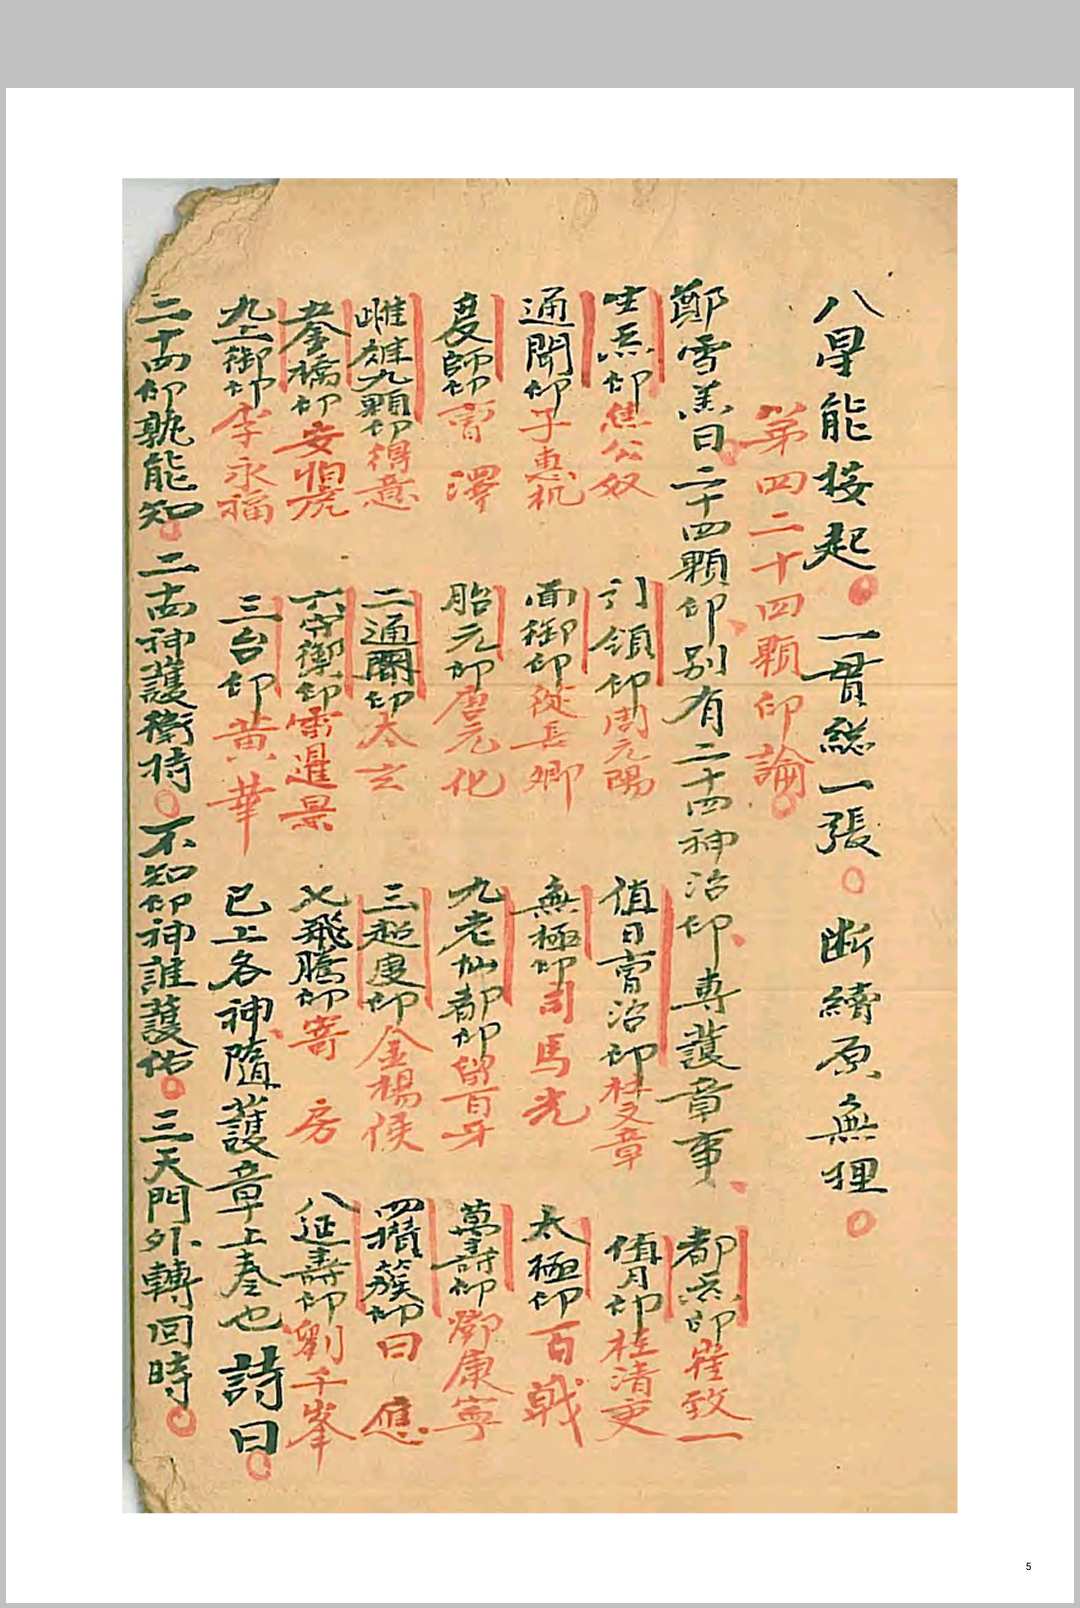 八星能接起。一貫總一張。斷續原無理。
第四二十四顆印論。
鄭雪羔曰。二十四顆印、別有二十四神治印、專護章事、都炁印崔致一
生炁印焦公奴 引領印周元陽 值日齎治印杜文章 值月印桂清吏
通聞印子惠机 面御印從長卿 無極印司馬光 太極印百戟
度師印 澤 胎元印唐元化 九老仙都印留百牙 萬壽印鄧康寧
雌雄九顆印得意 二通關印太玄 三超度印金楊侯 四積簇印曰應
五奎橋印安怕虎 六守禦印雷暹景 七飛騰印寄房 八延壽印劉千峯
九上御印李永福 三台印黃華 已上各神、隨護章上奏也 詩曰。
二十四印孰能知。二十四神護衛持。不知印神誰護佑。三天門外轉回時。
5